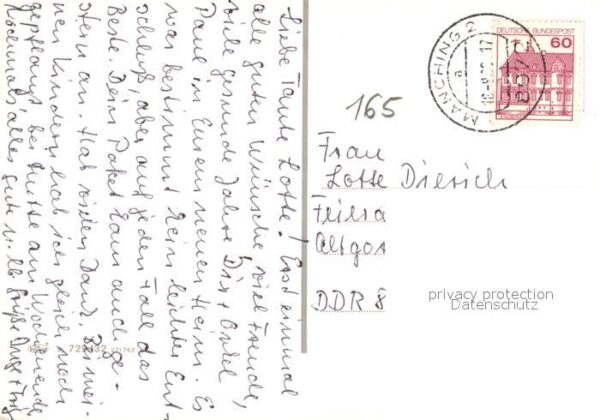 Liebe Tante Lotte! Erst einmal
alle guten Wünsche, viel Freude,
viele gesunde Jahre Dir + Onkel
Paul in Eurem neuen Heim. Es
war bestimmt kein leichter Ent-
schluß, aber auf jeden Fall das
Beste. Dein Paket kam auch ge-
stern an. Hab vielen Dank. Bei mei-
nen Kindern hab ich gleich noch
gepflanzt, bei Jutta am Wochenende
Nochmals alles Gute u. lb. Grüße
MANCHING 2
a
17
8071
DEUTSCHE BUNDESPOST
60
165
Frau
Lotte Dietrich
Altgor
DDR 8
privacy protection
Datenschutz